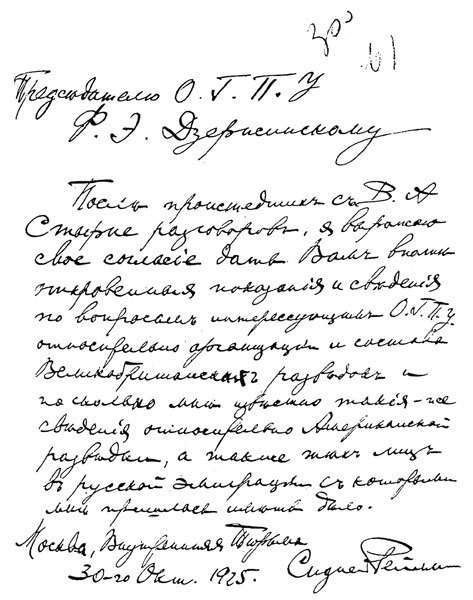 61
Председателю О. Г. П. У
Ф. Э. Дзержинскому
Послѣ происшедшихъ съ В. А
Стырне разговоровъ, я выражаю
свое согласіе дать Вамъ вполнѣ
откровенныя показанія и свѣдѣнія
по вопросамъ интересующимъ О.Г.П.У
относительно организаціи и состава
Великобританскихъ разведокъ и
по сколько мнѣ извѣстно такія-же
свѣдѣнія относительно Американской
разведки, а также тѣхъ лицъ
въ русской эмиграціи съ которыми
мнѣ пришлось имѣть дѣло.
Москва, Внутренняя Тюрьма
30-го Окт. 1925. Сидней Рейли